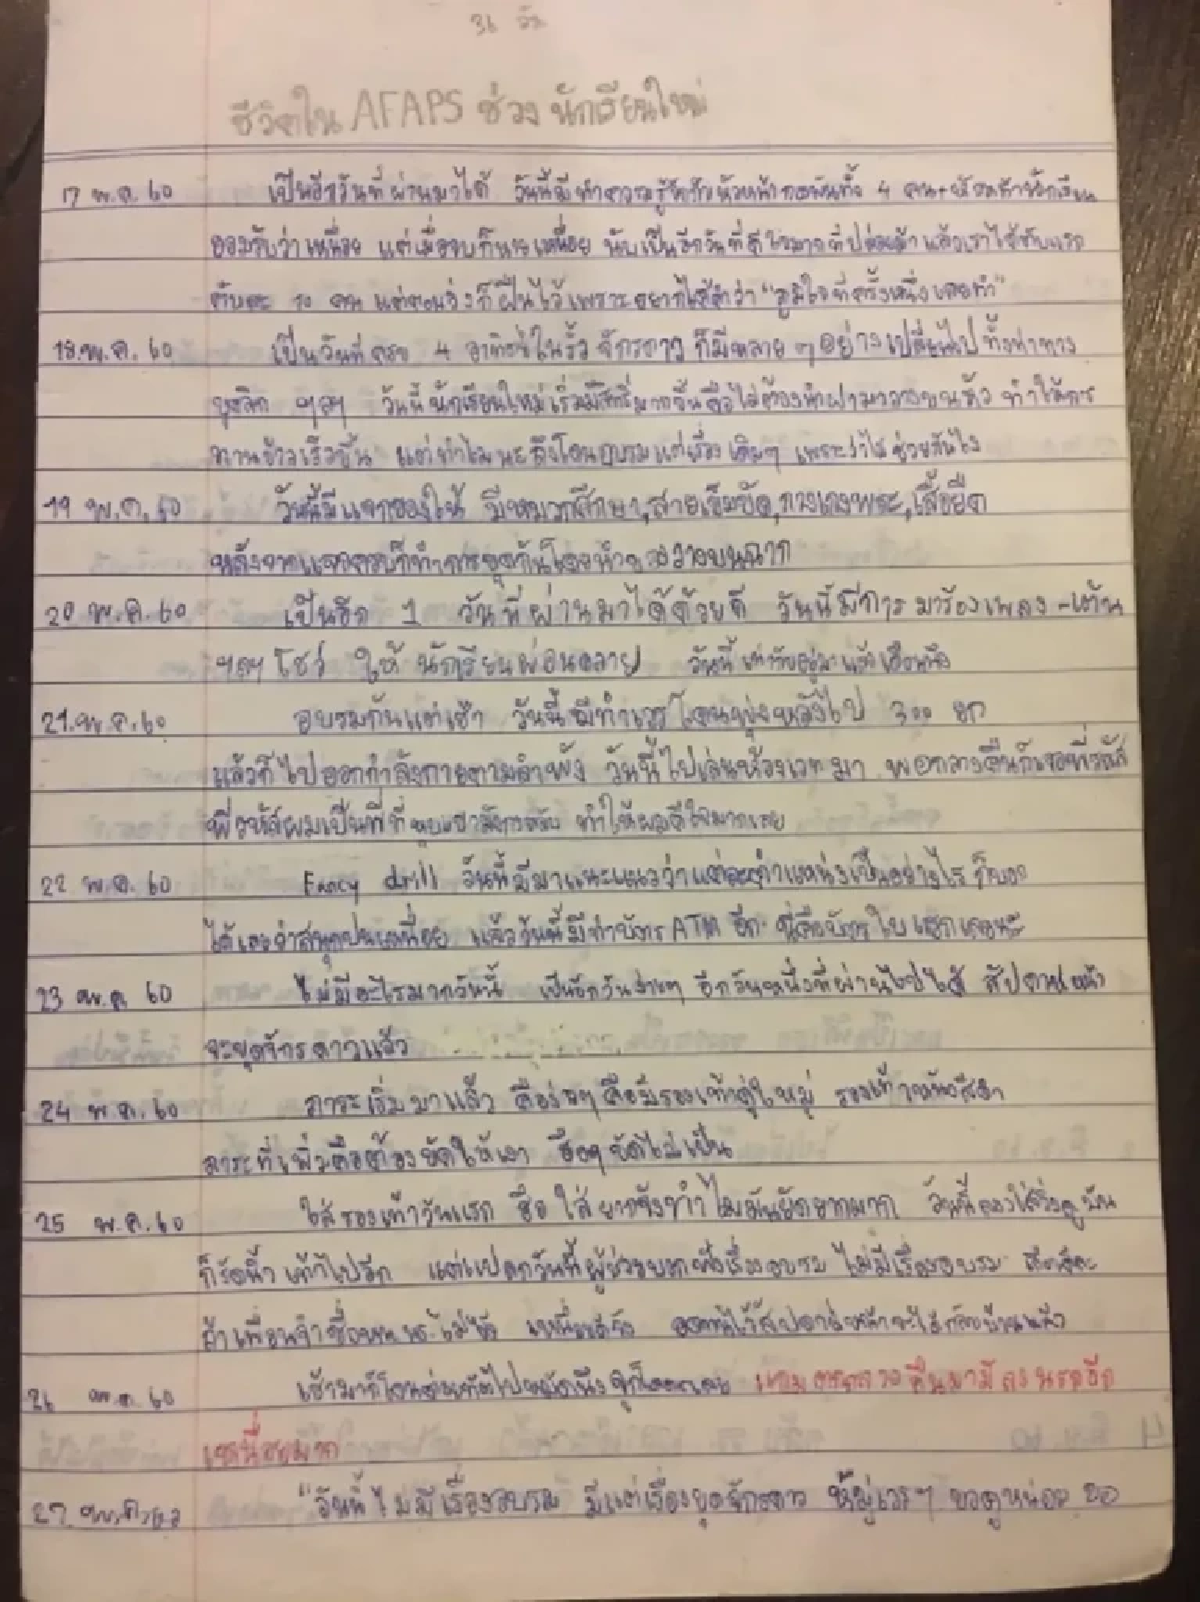 36 วัน
ชีวิตใน AFAPS ช่วง นักเรียนใหม่
17 พ.ค. 60 เป็นอีกวันที่ผ่านมาได้ วันนี้มีทำความรู้จักกับหัวหน้ากองพันทั้ง 4 คน
ยอมรับว่าเหนื่อย แต่เมื่อจบก็หายเหนื่อย นับเป็นอีกวันที่ดีใจมากที่
คน แต่ตอนวิ่งก็ฝืนไว้เพราะอยากได้คำว่า "ภูมิใจที่ครั้งหนึ่งเคยทำ"
18 พ.ค. 60 เป็นวันที่ครบ 4 อาทิตย์ในรั้วจักรดาว ก็มีหลาย ๆ อย่างเปลี่ยนไป ทั้งท่าทาง
บุคลิก ฯลฯ วันนี้นักเรียนใหม่เริ่มมีสิทธิ์มากขึ้นคือไม่ต้องนำฝามาวางบนหัว ทำให้การ
ทานข้าวเร็วขึ้น แต่ทำไมนะถึงโดนอบรมแต่เรื่องเดิมๆ เพราะอะไรช่วยกันไง
19 พ.ค. 60 วันนี้มีแจกของให้ มีหมวกศึกษา, สายเข็มขัด, กางเกงพละ, เสื้อยืด
หลังจากแจกครบก็ทำการ
20 พ.ค. 60 เป็นอีก 1 วันที่ผ่านมาได้ด้วยดี วันนี้มีการมาร้องเพลง-เต้น
ฯลฯ โชว์ ให้ นักเรียนผ่อนคลาย วันนี้
21 พ.ค. 60 อบรมกันแต่เช้า วันนี้มีทำเวร โดนพุ่งหลังไป 300 ยก
แล้วก็ไปออกกำลังกายตามลำพัง วันนี้ไปเล่นห้องเวทมา พอกลางคืนก็เจอพี่รหัส
พี่รหัสผมเป็นพี่ที่ ทำให้ผมดีใจมากเลย
22 พ.ค. 60 Fancy drill วันนี้มีมาแนะแนวว่าแต่ละตำแหน่งเป็นอย่างไร ก็บอก
ได้เลยว่าสนุกปนเหนื่อย แล้ววันนี้มีทำบัตร ATM อีก นี่คือบัตรใบแรกเลยนะ
23 พ.ค. 60 ไม่มีอะไรมากวันนี้ เป็นอีกวันง่ายๆ อีกวันหนึ่งที่ผ่านไปได้ สัปดาห์หน้า
จะหยุดจักรดาวแล้ว
24 พ.ค. 60 ภาระเริ่มมาแล้ว คือง่ายๆ คือมีรองเท้าคู่ใหม่ รองเท้าหนังสีดำ
ภาระที่เพิ่มคือต้องขัดให้เงา ซึ่งๆ ขัดไม่เป็น
25 พ.ค. 60 ใส่รองเท้าวันแรก คือ ใส่ยากจังทำไมมันยัดยากมาก วันนี้ลองใส่วิ่งดู มัน
ก็รัดนิ้วเท้าไปอีก แต่แปลกวันนี้ผู้ช่วยบอกชื่อเรื่องอบรม ไม่มีเรื่องอบรม
ถ้าเพื่อนจำชื่อ ไม่ได้ อดทนไว้สัปดาห์หน้าจะได้กลับบ้านแล้ว
26 พ.ค. 60 เช้ามาก็โดน แถมตกกลางคืนมามีลงนรกอีก
เหนื่อยมาก
27 พ.ค. 60 "วันนี้ไม่มีเรื่องอบรม มีแต่เรื่องหยุดจักรดาว